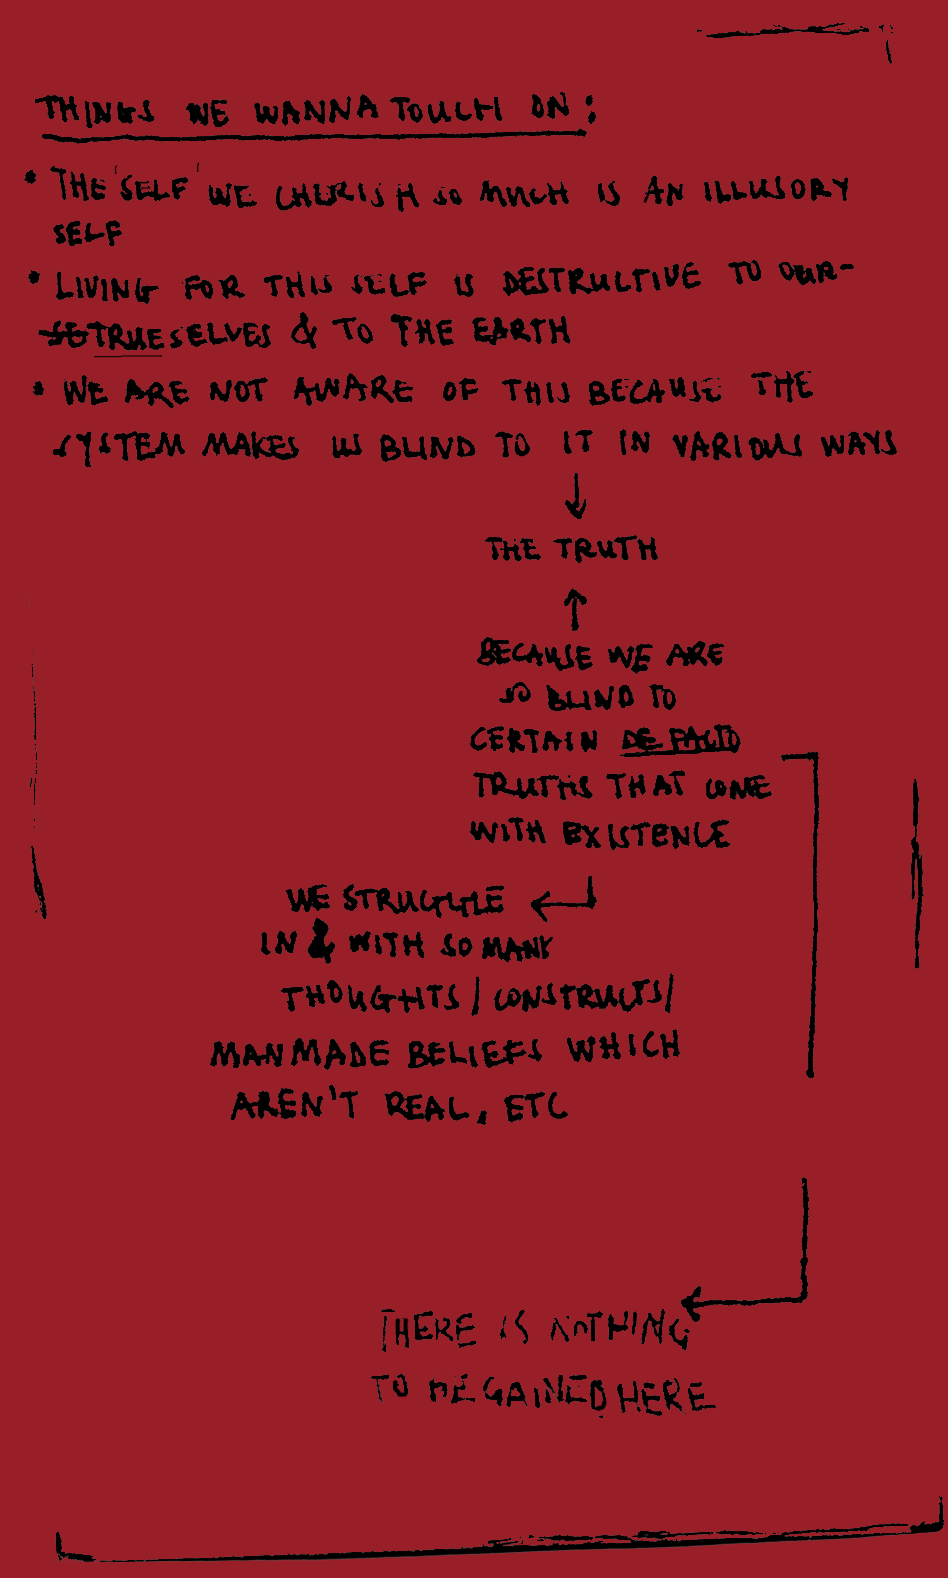 THINGS WE WANNA TOUCH ON:
* THE 'SELF' WE CHERISH SO MUCH IS AN ILLUSORY
SELF
* LIVING FOR THIS SELF IS DESTRUCTIVE TO OUR-
SE TRUE SELVES & TO THE EARTH
* WE ARE NOT AWARE OF THIS BECAUSE THE
SYSTEM MAKES US BLIND TO IT IN VARIOUS WAYS
↓
THE TRUTH
↑
BECAUSE WE ARE
SO BLIND TO
CERTAIN DE FACTO
TRUTHS THAT COME
WITH EXISTENCE
WE STRUGGLE ←
IN & WITH SO MANY
THOUGHTS / CONSTRUCTS /
MANMADE BELIEFS WHICH
AREN'T REAL, ETC
THERE IS NOTHING
TO BE GAINED HERE